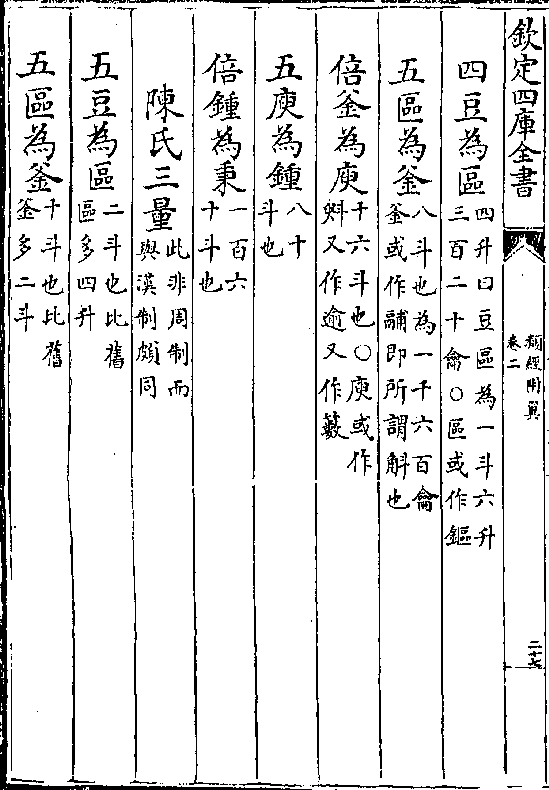 欽定四庫全書
類經附翼
卷二
二十七
四豆為區四升曰豆區為一斗六升三百二十龠○區或作鏂
五區為釜八斗也為一千六百龠釜或作鬴即所謂斛也
倍釜為庾十六斗也○庾或作㪺又作逾又作籔
五庾為鍾八十斗也
倍鍾為秉一百六十斗也
陳氏三量此非周制而與漢制頗同
五豆為區二斗也比舊區多四升
五區為釜十斗也比舊釜多二斗